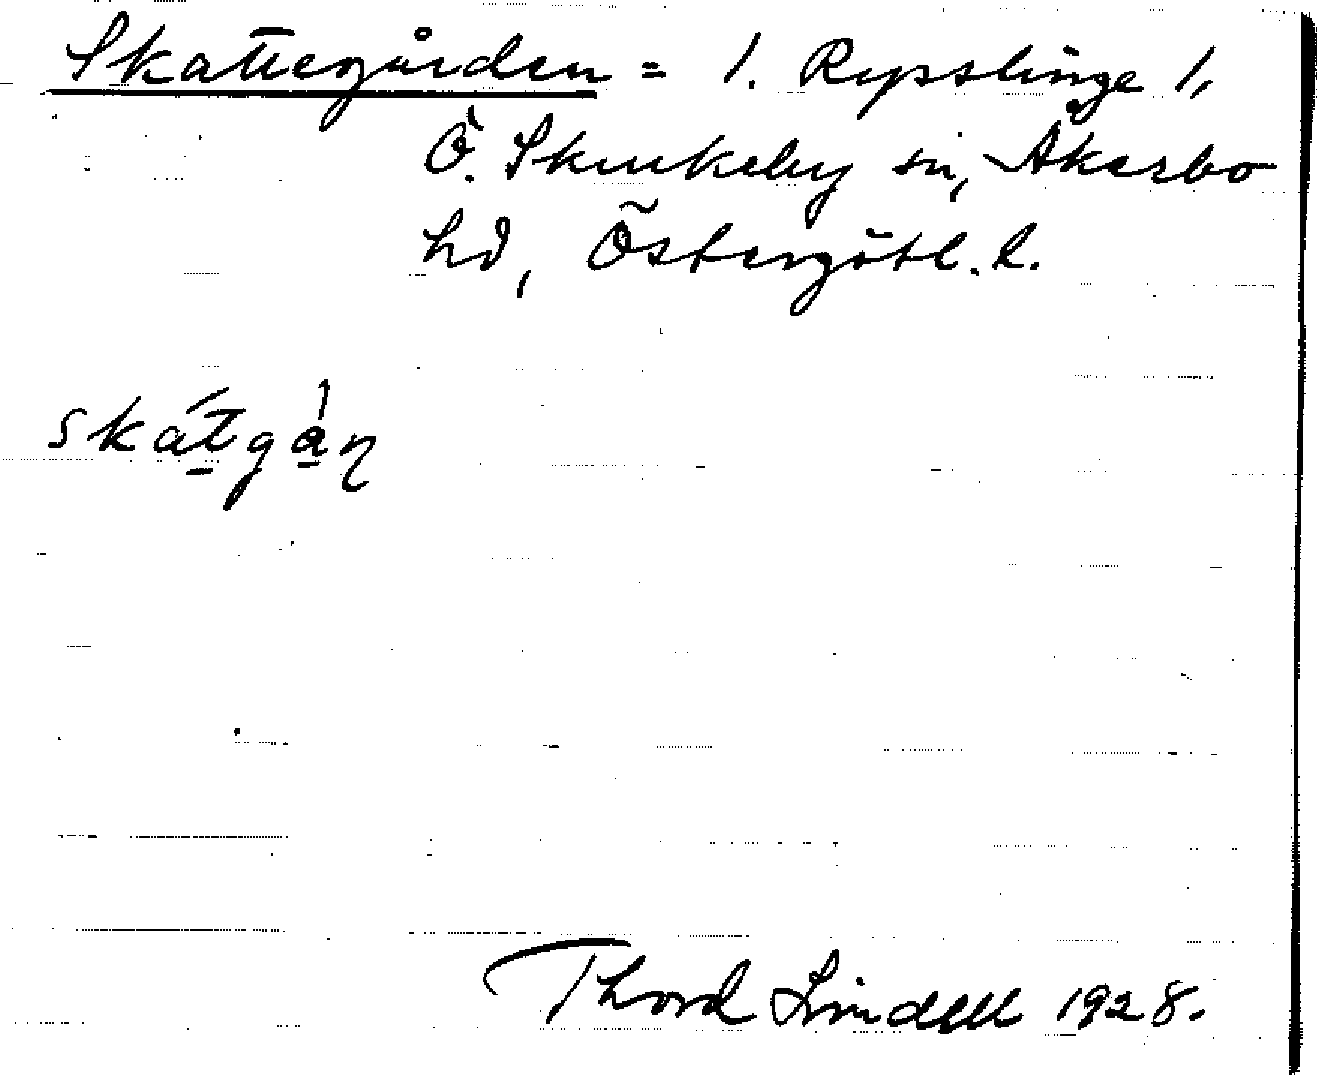 Skattegården = 1. Rypslinge 1,
Ö. Skrukeby sn, Åkerbo
hd, Östergötl. l.
skát̠gà̠ɳ
Thord Lindell 1928.